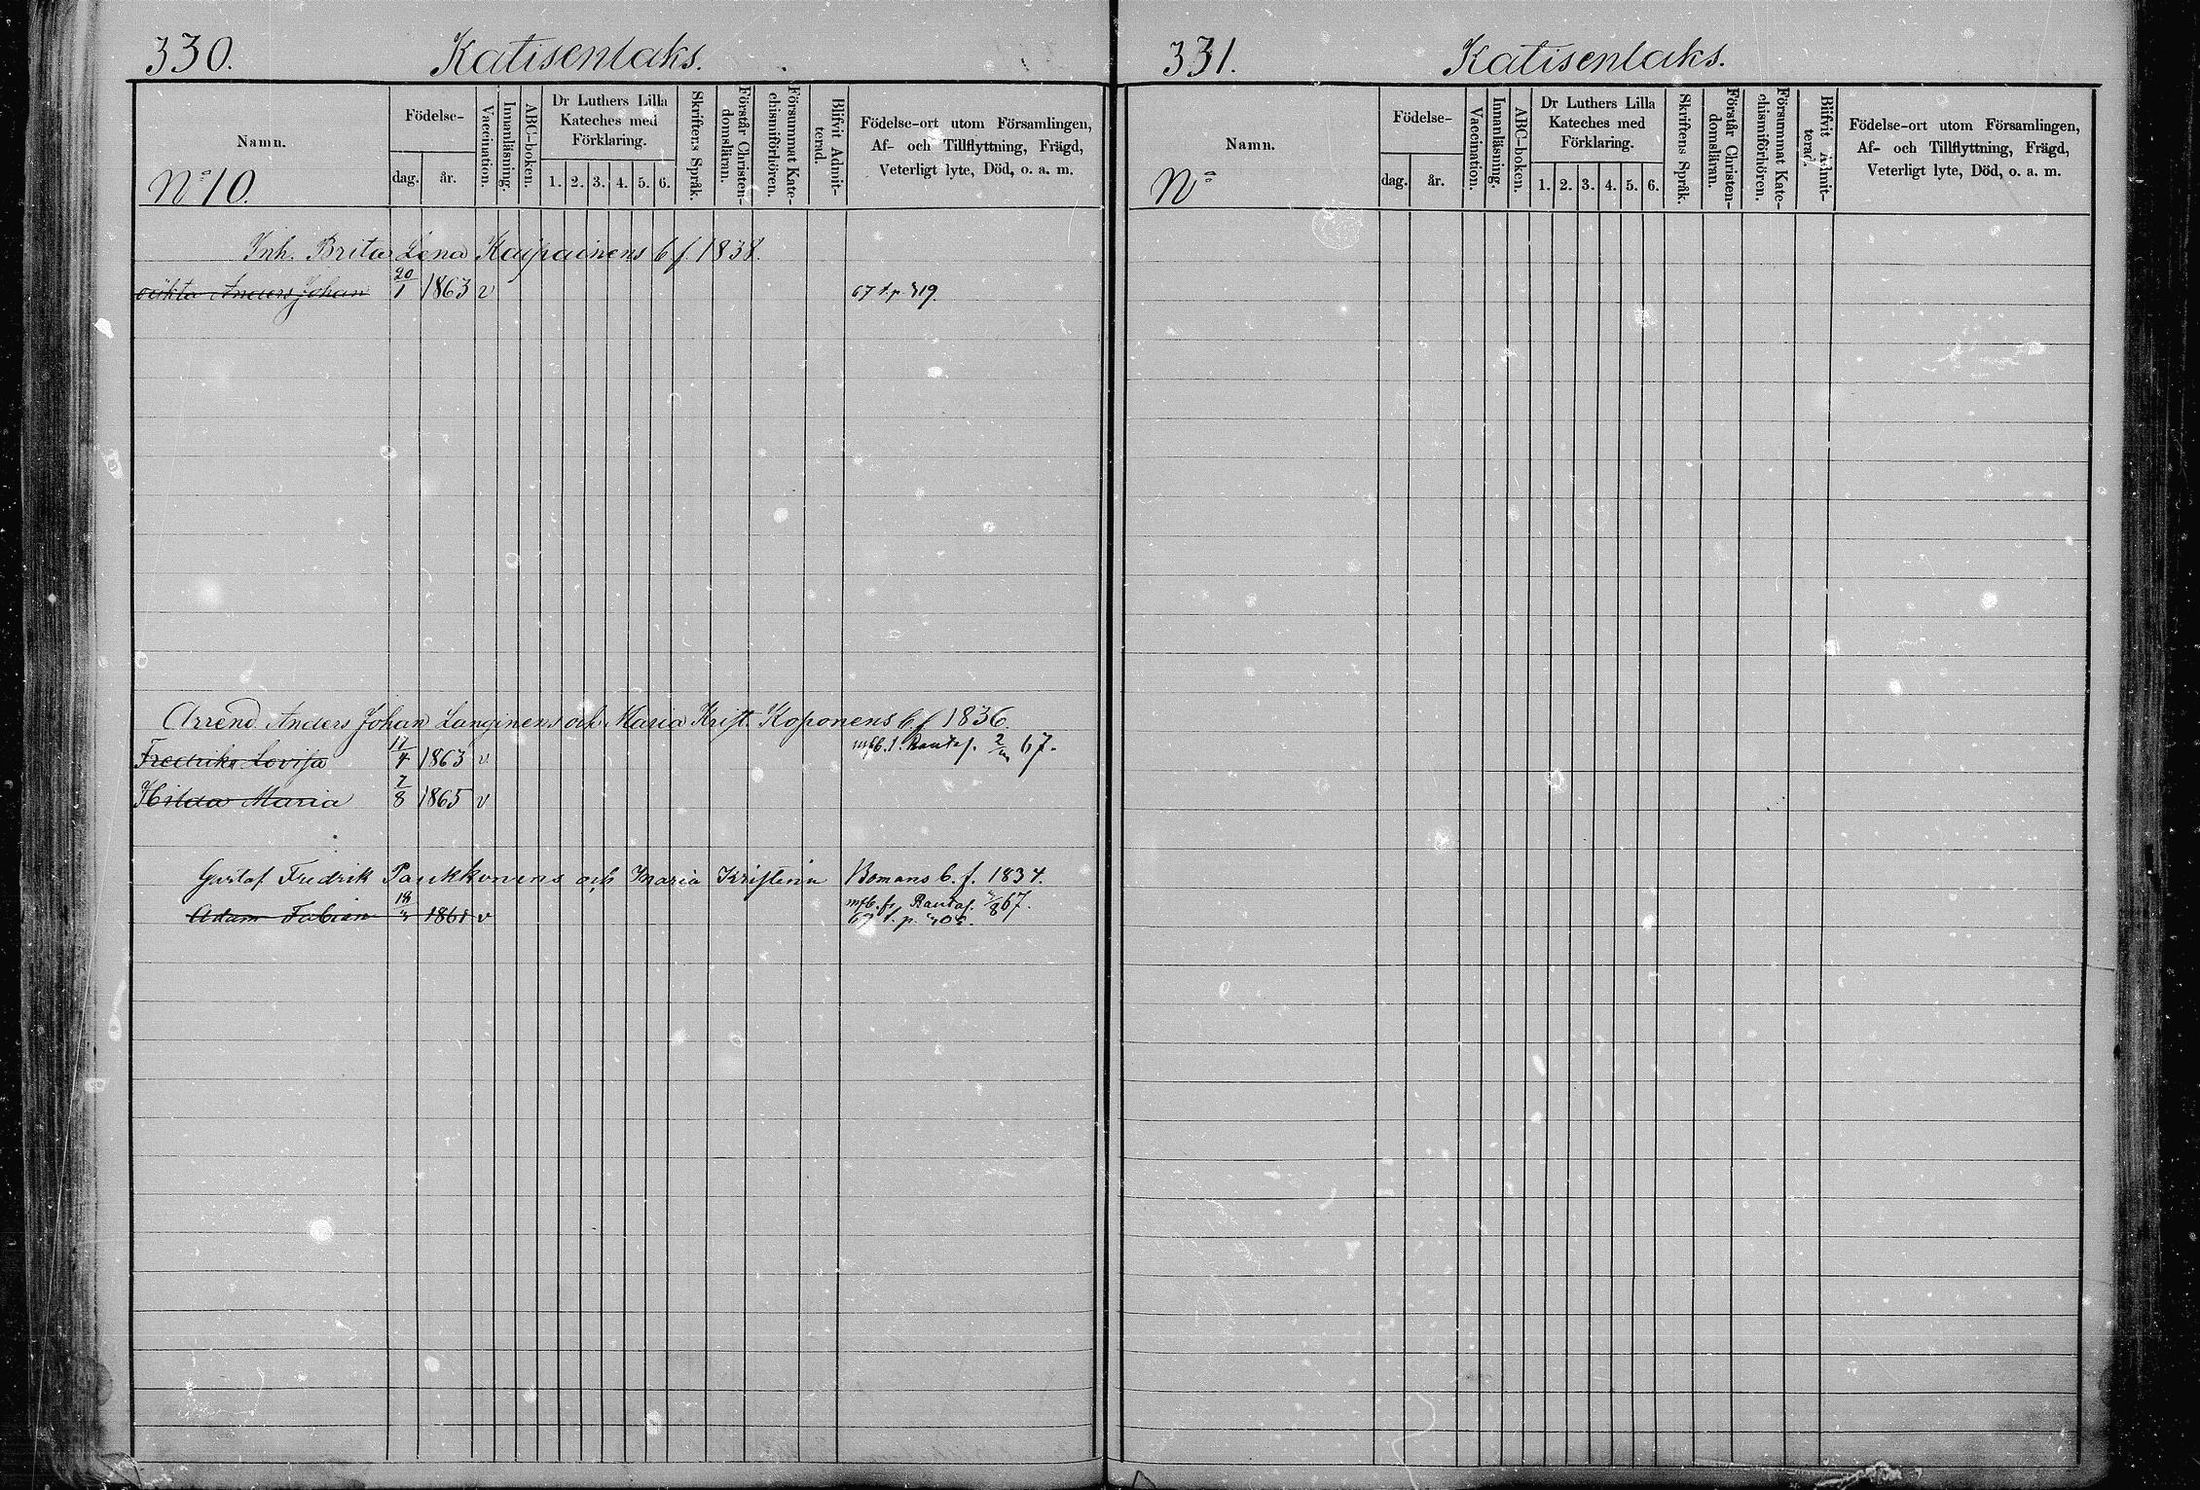 330. Katisenlaks.
Namn.
Födelse-
dag. år.
Vaccination.
Innanläsning.
ABC-boken.
Dr Luthers Lilla
Kateches med
Förklaring.
1. 2. 3. 4. 5. 6.
Skriftens Språk.
Förstår Christen-
domsläran.
Försummat Kate-
chismiförhören.
Blifvit Admit-
terad.
Födelse-ort utom Församlingen,
Af- och Tillflyttning, Frägd,
Veterligt lyte, Död, o. a. m.
No 10.
Inh. Brita Lena Kaipainens b f. 1838.
oäkta Anders Johan 20/1 1863 v 67 t.p. 719
Arrend. Anders Johan Langinens och Maria Krist. Koponens b f 1836.
mfb. t. Rautal. 2/11 67.
Fredrika Lovisa 17/4 1863 v
Hilda Maria 7/8 1865 v
Gustaf Fredrik Paukkonens och Maria Kristina Bomans b. f. 1834.
mfb. fr. Rautal. /8 67.
Adam Fabian 1861 v 69 t. p.
331. Katisenlaks.
Namn.
Födelse-
dag. år.
Vaccination.
Innanläsning.
ABC-boken.
Dr Luthers Lilla
Kateches med
Förklaring.
1. 2. 3. 4. 5. 6.
Skriftens Språk.
Förstår Christen-
domsläran.
Försummat Kate-
chismiförhören.
Blifvit Admit-
terad.
Födelse-ort utom Församlingen,
Af- och Tillflyttning, Frägd,
Veterligt lyte, Död, o. a. m.
No